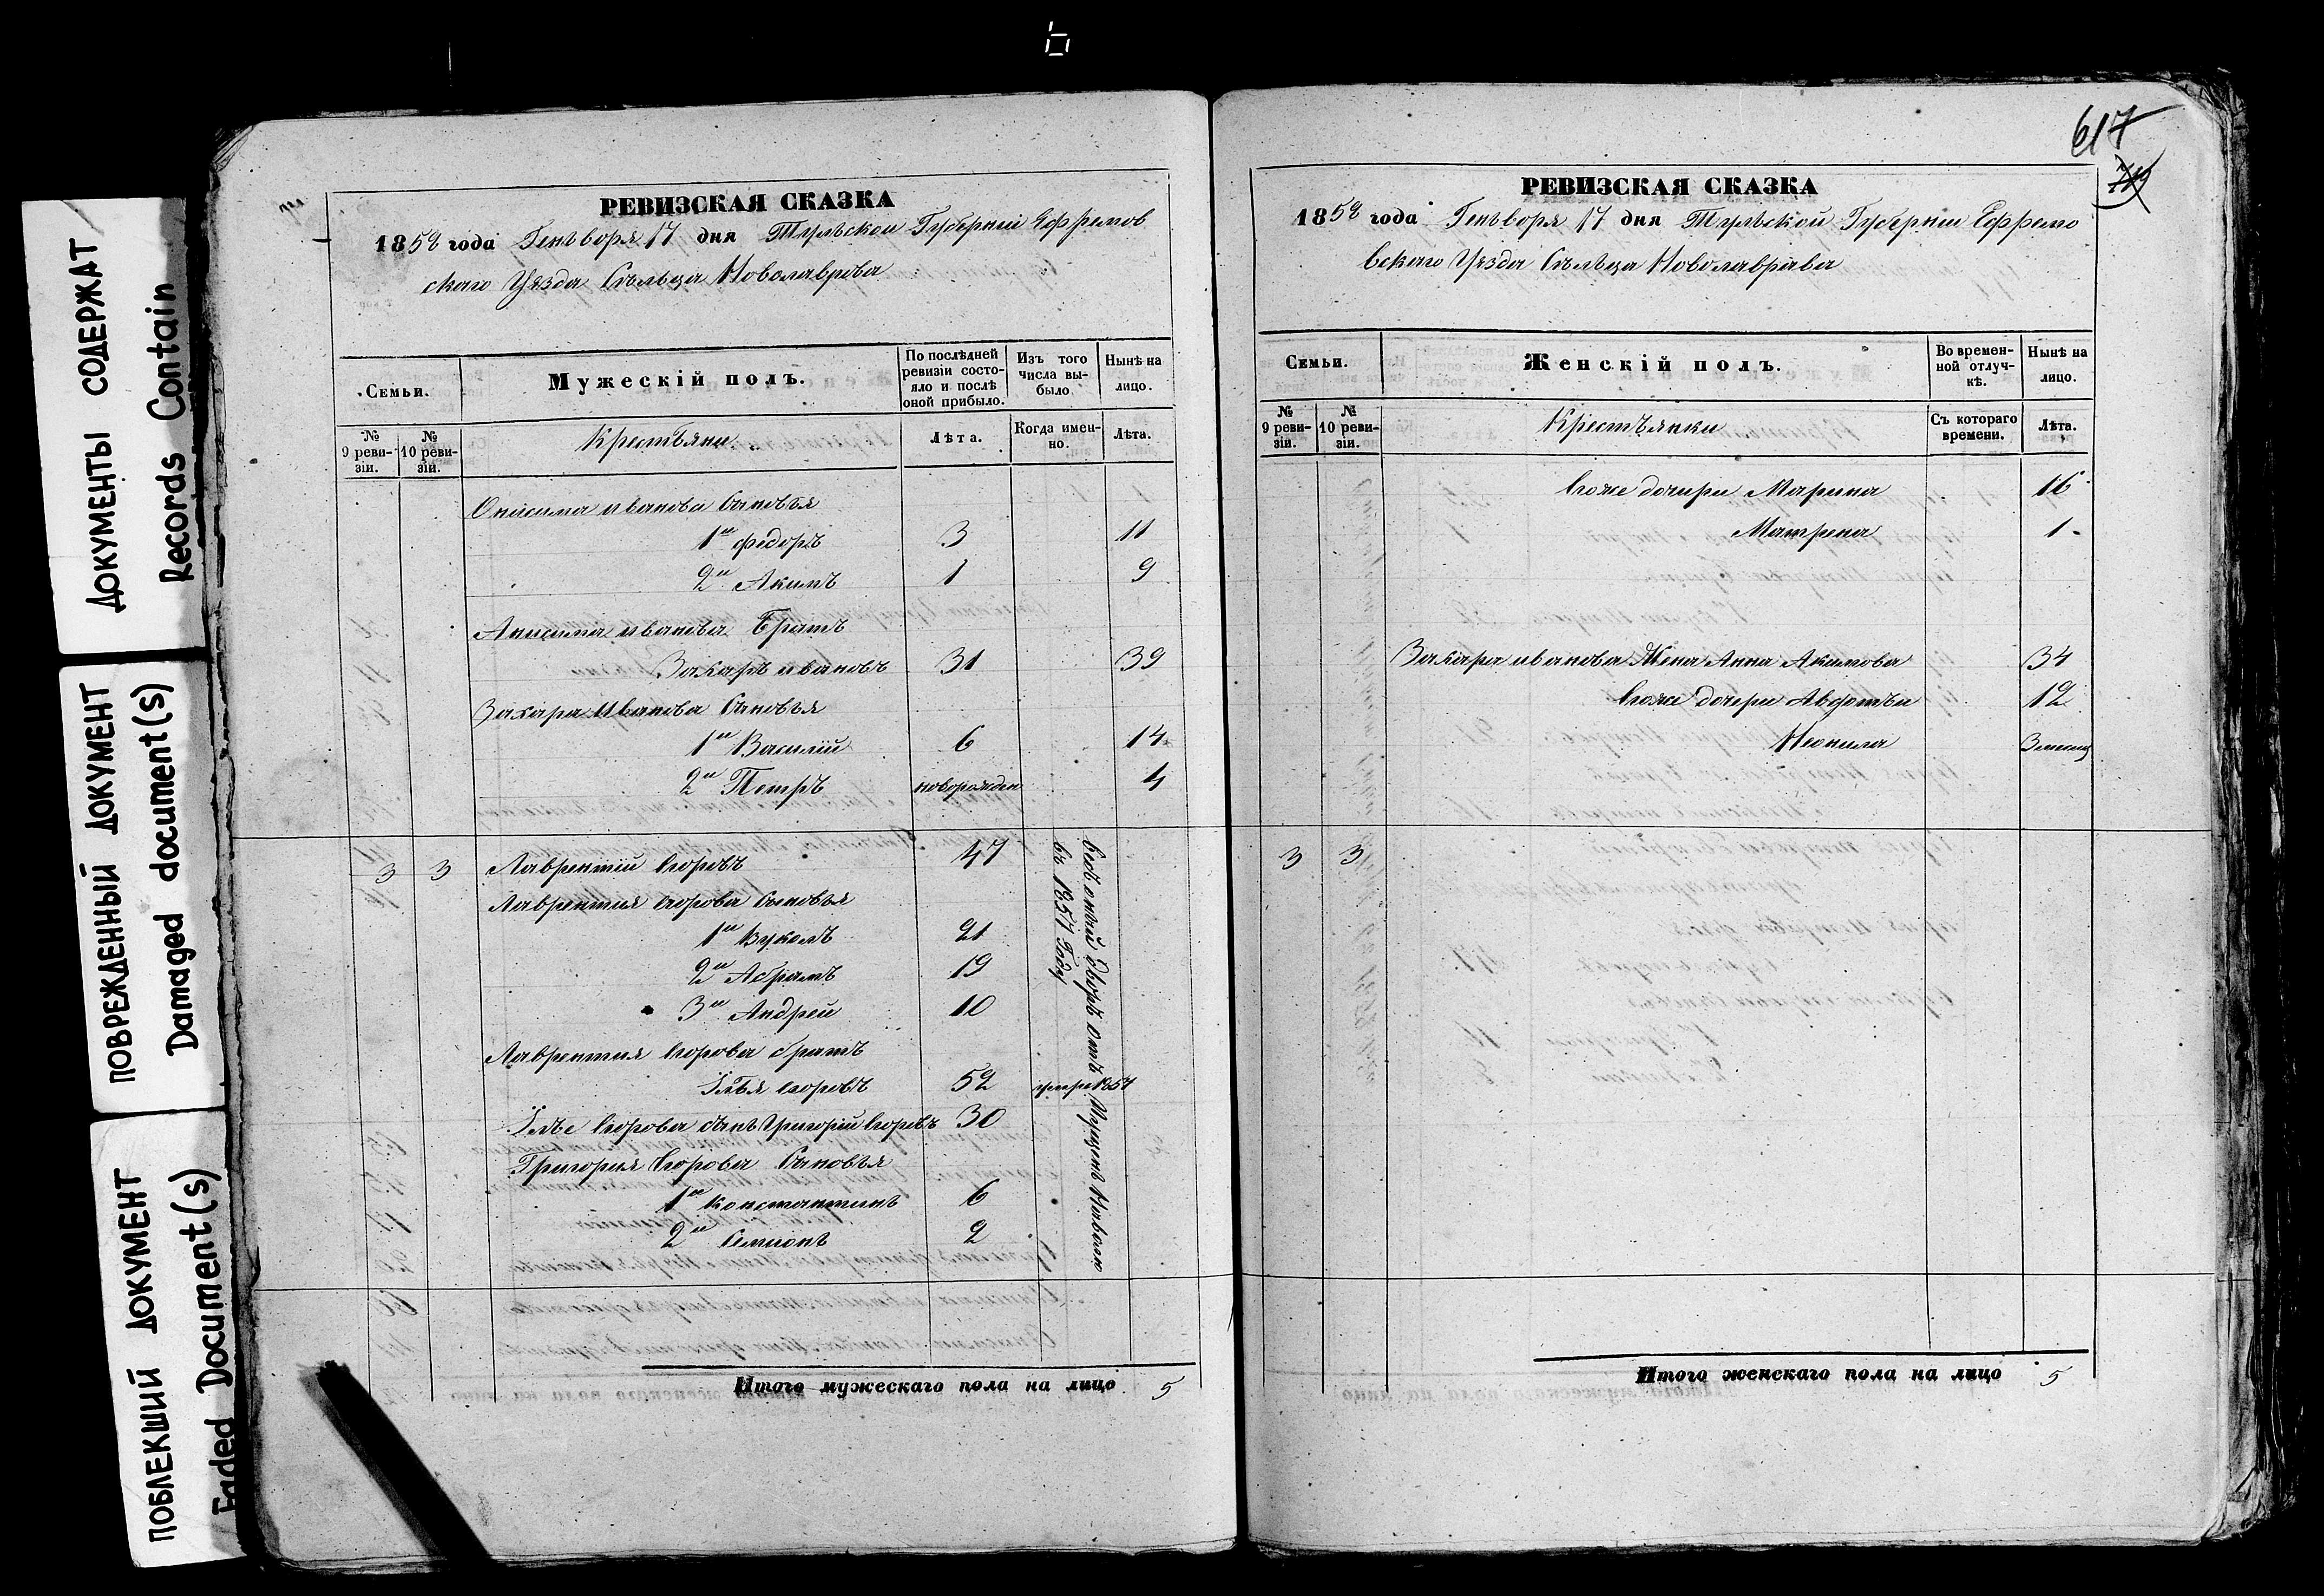 ДОКУМЕНТЫ СОДЕРЖАТ
Records Contain
ПОВРЕЖДЕННЫЙ ДОКУМЕНТ
Damaged document(s)
ПОБЛЕКШИЙ ДОКУМЕНТ
Faded Document(s)
РЕВИЗСКАЯ СКАЗКА
1858 года Генъворя 17 дня Тульской Губерніи Ефремов
скаго Уезда Сельца Новолаврова
Семьи.
Мужескій полъ.
По послѣдней ревизіи состояло и послѣ оной прибыло.
Изъ того числа выбыло
Нынѣ на лицо.
№ 9 ревизіи.
№ 10 ревизіи.
Крестьяни
Лѣта.
Когда именно.
Лѣта.
Онисима иванова Сыновья
1й федоръ 3 11
2й Акимъ 1 9
Анисима иванова Братъ
Захаръ ивановъ 31 39
Захара Иванова Сыновья
1й Василій 6 14
2й Петръ новорожден 4
3 3 Лаврентій Егоровъ 47
Лаврентия Егорова Сыновья
1й Вуколъ 21
2й Абрамъ 19
3й Андрей 10
Лаврентия Егорова братъ
Илья егоровъ 52 умре 1854
Ильи Егорова сынъ Григорій Егоровъ 30
Григория Егорова Сыновья
1й Константинъ 6
2й Семионъ 2
Весь оный дворъ Отпущенъ Наволю
въ 1857 Году
Итого мужескаго пола на лицо 5
617
719
РЕВИЗСКАЯ СКАЗКА
1858 года Генъворя 17 дня Тульской Губернии Ефремо
вскаго Уезда Сельца Новолаврава
Семьи.
Женскій полъ.
Во временной отлучкѣ.
Нынѣ на лицо.
№ 9 ревизіи.
№ 10 ревизіи.
Крестьянки
Съ котораго времени.
Лѣта.
Егоже дочери Марина 16
Матрена 1
Захара иванова Жена Анна Акимова 34
Егоже дочери Авдотьи 12
Неонила 3 месяц
3 3
Итого женскаго пола на лицо 5